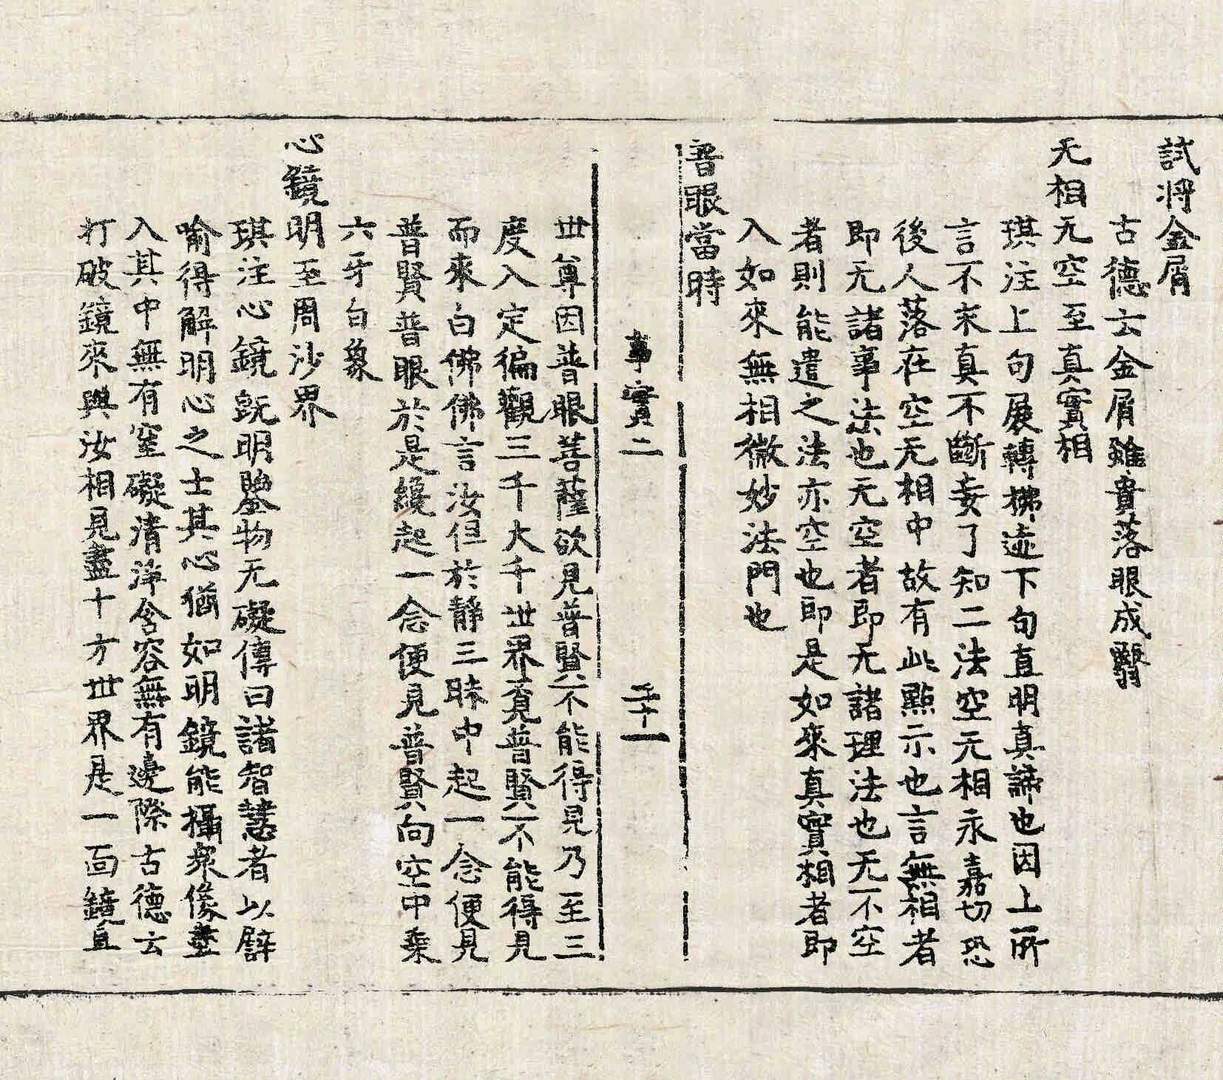 試将金屑
古德云金屑雖貴落眼成翳
无相无空至真實相
琪注上句展轉拂迹下句直明真諦也因上所
言不求真不斷妄了知二法空无相永嘉切恐
後人落在空无相中故有此顯示也言無相者
即无諸事法也无空者即无諸理法也无不空
者則能遣之法亦空也即是如來真實相者即
入如來無相微妙法門也
普眼當時
事實二 三十一
世尊因普眼菩薩欲見普賢不能得見乃至三
度入定徧觀三千大千世界覓普賢不能得見
而來白佛佛言汝但於靜三昧中起一念便見
普賢普眼於是纔起一念便見普賢向空中乗
六牙白象
心鏡明至周沙界
琪注心鏡旣明鑒物无礙傳曰諸智慧者以譬
喻得解明心之士其心猶如明鏡能攝衆像盡
入其中無有窒礙清淨含容無有邊際古德云
打破鏡來與汝相見盡十方世界是一面鏡且